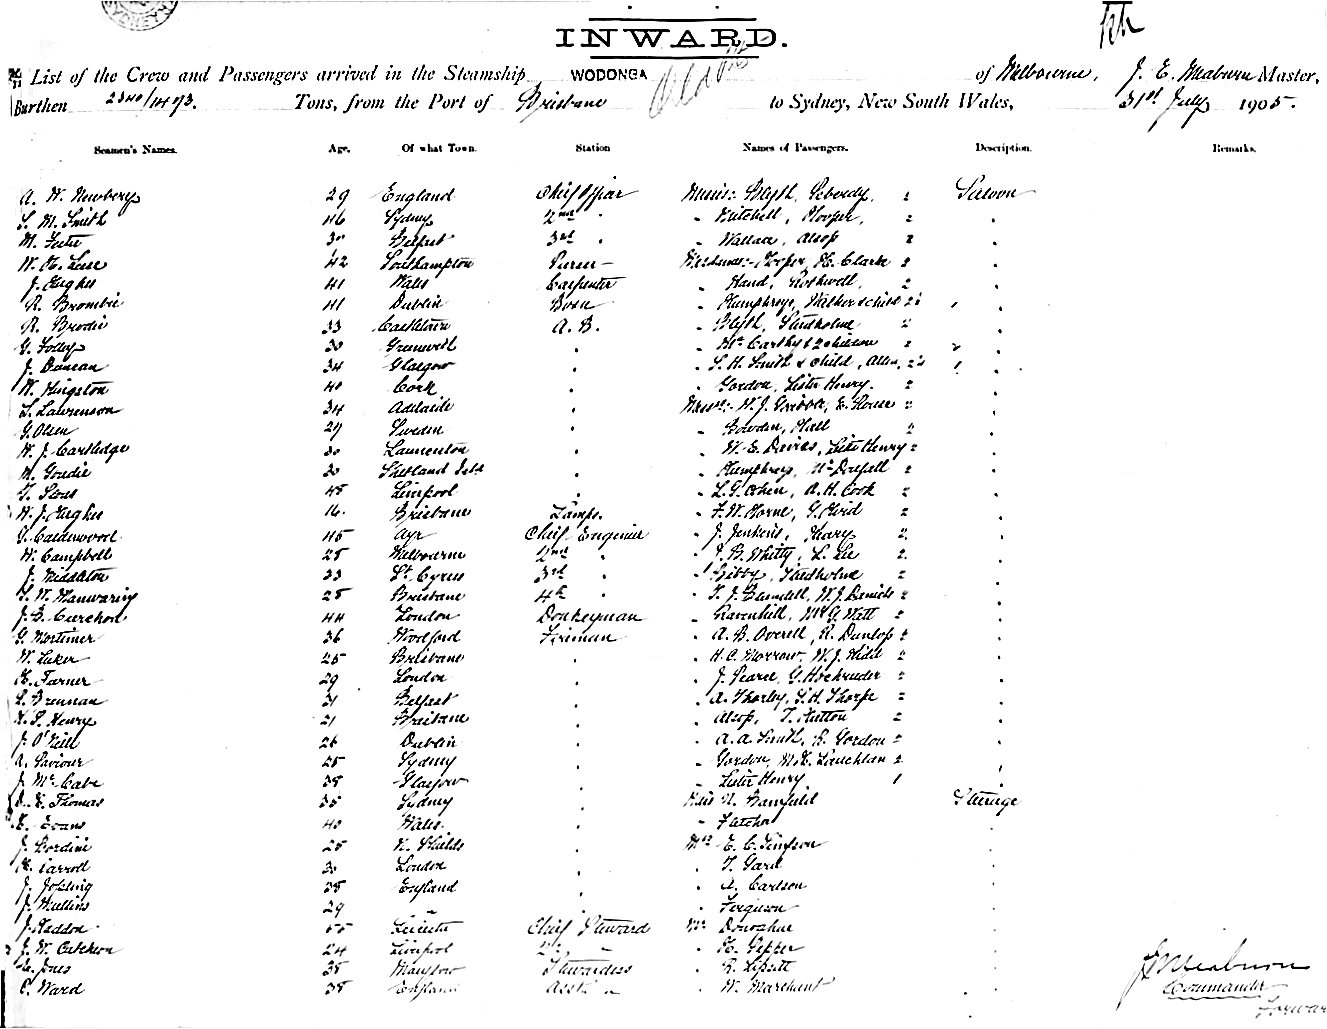 SYDNEY
INWARD.
List of the Crew and Passengers arrived in the Steamship WODONGA of Melbourne, J. E. Meaburn Master,
Burthen 2340/1473. Tons, from the Port of Brisbane to Sydney, New South Wales, 31st July 1905.
Seamen's Names. Age. Of what Town. Station Names of Passengers. Description. Remarks.
A. W. Newbery 29 England Chief Officer Misses: Blyth, 2 Saloon
S. M. Smith 46 Sydney 2nd " " Mitchell, Hooper, 2 "
M. 30 Belfast 3rd " " Wallace, Alsop 2 "
W. H. 42 Southampton Purser Hooper, H. Clark 2 "
J. Hughes 41 Wales Carpenter " Hand, Rothwell, 2 "
R. Brombie 41 Dublin Bosn " Humphreys, Walker & child 2 1 "
R. Brodie 33 Castletown A. B. " Blyth, Studholme 2 "
G. Folley 30 Greenwell " " McCarthy & 2 children 2 2 "
J. Duncan 34 Glasgow " " S. H. Smith & Child, Allen, 2 1 "
W. Kingston 40 Cork " " Gordon, Lister Henry. 2 "
L. Lawrenson 34 Adelaide " Messrs: W. J. Gribble, E. 2 "
G. Olsen 29 Sweden " " Bowden, Hall 2 "
W. J. Cartledge 30 Launceston " " W. E. Davies, Lister Henry 2 "
M. Goudie 30 Shetland Isls " " Humphreys, 2 "
T. 45 Liverpool " " L. G. Cohen, A. H. Cook 2 "
W. J. Hughes 16. Brisbane Lamps. " F. W. Horne, G. 2 "
G. Calderwood 45 Ayr Chief Engineer " J. Jenkins, Heavy 2 "
W. Campbell 28 Melbourne 2nd " " J. B. Whitty, L. Lee 2 "
J. Middleton 33 St. Cyrus 3rd " " Gibby, Studholme 2 "
T. W. Manwaring 28 Brisbane 4th " " T. J. Blundell, W. J. Daniels 2 "
J. B. Curchon 44 London Donkeyman " Ravenhill, G. Watt 2 "
G. Mortimer 36 Woodford Fireman " A. B. Overell, R. Dunlop 2 "
W. Luker 25 Brisbane " " H. C. Morrow, W. J. 2 "
H. Farner 29 London " " J. Pearce, G. Hockrueder 2 "
L. Brennan 31 Belfast " " A. Thorley, S. H. Thorpe 2 "
H. P. Henry 21 Brisbane " " Alsop, T. Hutton 2 "
J. O'Neill 26 Dublin " " A. A. Smith, R. Gordon 2 "
A. Saviour 25 Sydney " " Gordon, Lauchlan 2 "
J. McCabe 38 Glasgow " " Lister Henry 1 "
Thomas 35 Sydney " Miss N. Bamfield Steerage
E. Evans 40 Wales. " " Fletcher "
J. Gordine 25 N. Shields " Mrs E. C. Simpson "
H. Carroll 30 London " " T. Gard "
J. Jopling 38 England " " A. Carlson "
J. Mullins 29 " " " Ferguson "
J. Haddon 55 Leicester Chief Steward Mr Donoghue "
J. W. 24 Liverpool 2nd " " H. Pepper "
Jones 38 Stewardess " R. "
C. Ward 38 England Asst " " W. Marchant "
J. E. Meaburn
Commander